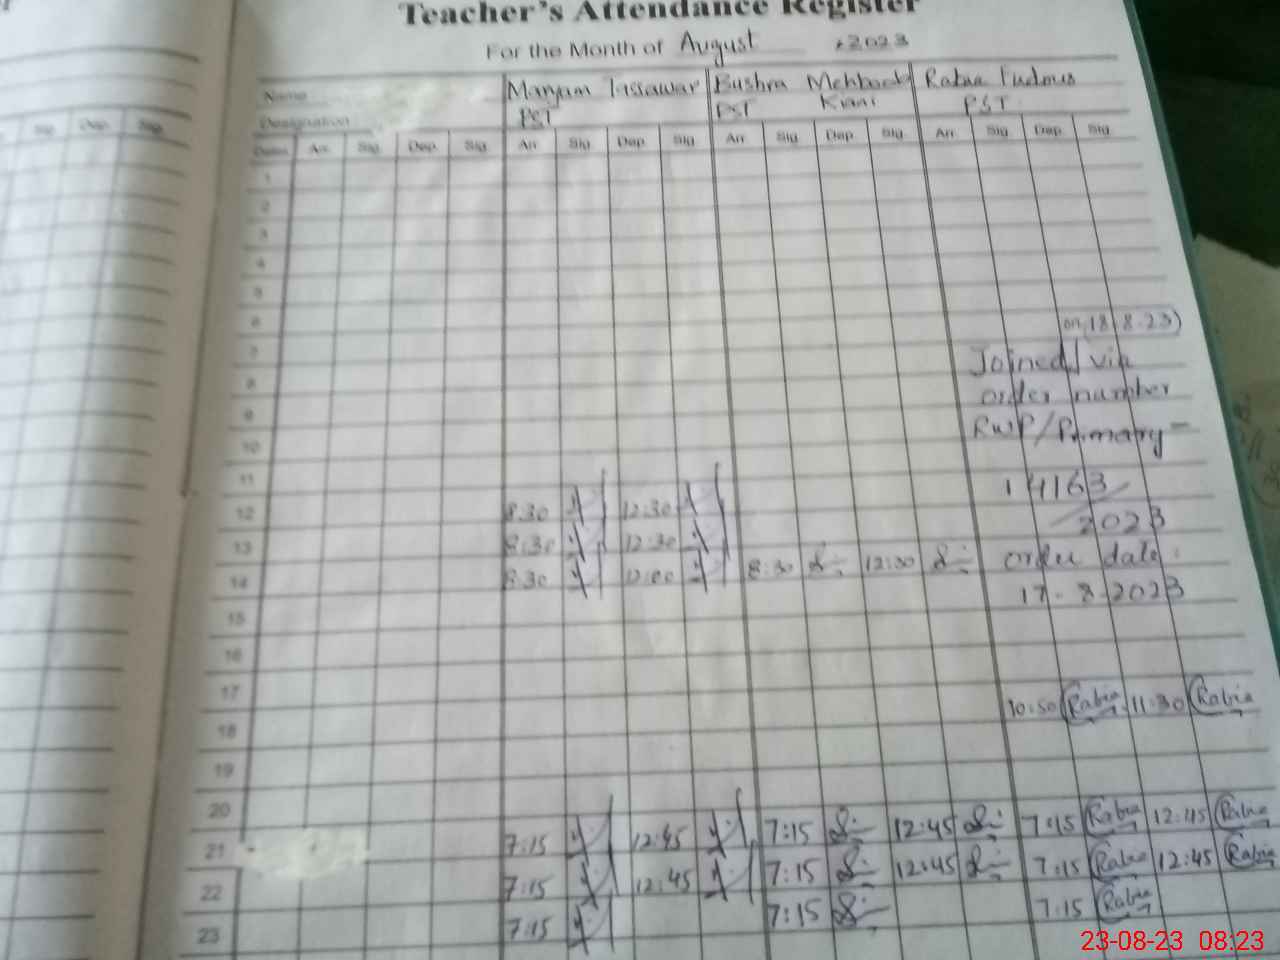 Teacher's Attendance Register
For the Month of August 2023
Name Maryam Tassawar Bushra Mehboob Rabia
Designation PST Kiani PST PST
Sig. Dep. Sig.
Dates Arr. Sig. Dep. Sig. Arr. Sig. Dep. Sig. Arr. Sig. Dep. Sig. Arr. Sig. Dep. Sig.
1
2
3
4
5
6 on 18.8.23)
7 Joined via
8 order number
9 RWP/Primary-
10
11 14163/
12 8.30 12:30 2023
13 8:30 12:30 order date:
14 8:30 12:00 8:30 12:30 17-8-2023
15
16
17 10:50 Rabia 11:30 Rabia
18
19
20
21 7:15 12:45 7:15 12:45 7:15 Rabia 12:45 Rabia
22 7:15 12:45 7:15 12:45 7:15 Rabia 12:45 Rabia
23 7:15 7:15 7:15 Rabia
23-08-23 08:23